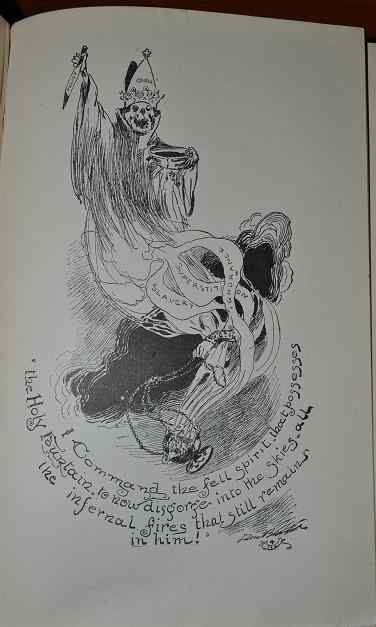 IGNORANCE
SUPERSTITION
SLAVERY
"I Command the fell spirit, that possesses
the Holy Fountain, to now disgorge into the skies, all
the infernal fires that still remain
in him!"